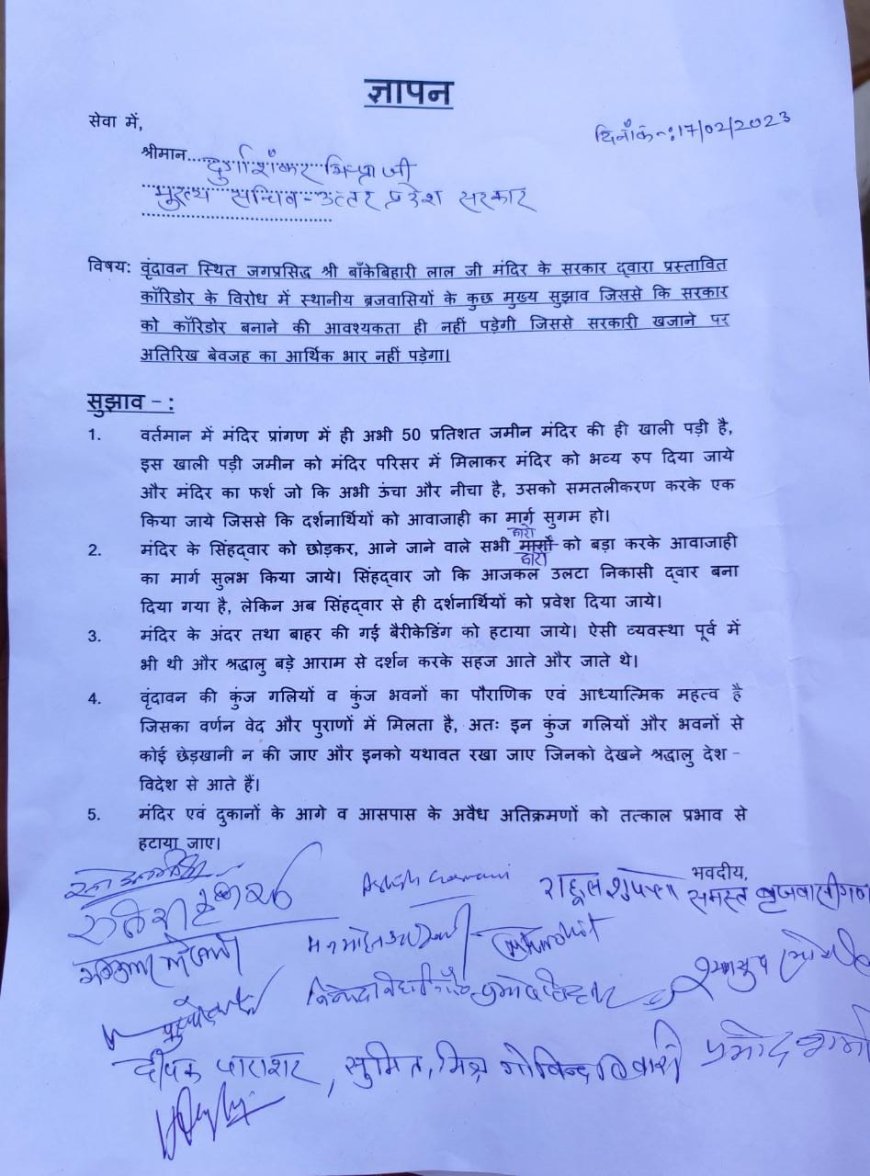 ज्ञापन
सेवा में,
दिनाँक-:17/02/2023
श्रीमान...दुर्गाशंकर मिश्रा जी
मुख्य सचिव-उत्तर प्रदेश सरकार
विषय: वृंदावन स्थित जगप्रसिद्ध श्री बाँकेबिहारी लाल जी मंदिर के सरकार द्वारा प्रस्तावित
कॉरिडोर के विरोध में स्थानीय ब्रजवासियों के कुछ मुख्य सुझाव जिससे कि सरकार
को कॉरिडोर बनाने की आवश्यकता ही नहीं पड़ेगी जिससे सरकारी खजाने पर
अतिरिख बेवजह का आर्थिक भार नहीं पड़ेगा।
सुझाव -:
1. वर्तमान में मंदिर प्रांगण में ही अभी 50 प्रतिशत जमीन मंदिर की ही खाली पड़ी है,
इस खाली पड़ी जमीन को मंदिर परिसर में मिलाकर मंदिर को भव्य रुप दिया जाये
और मंदिर का फर्श जो कि अभी ऊंचा और नीचा है, उसको समतलीकरण करके एक
किया जाये जिससे कि दर्शनार्थियों को आवाजाही का मार्ग सुगम हो।
2. मंदिर के सिंहद्वार को छोड़कर, आने जाने वाले सभी मार्गो को बड़ा करके आवाजाही
द्वारो
का मार्ग सुलभ किया जाये। सिंहद्वार जो कि आजकल उलटा निकासी द्वार बना
दिया गया है, लेकिन अब सिंहद्वार से ही दर्शनार्थियों को प्रवेश दिया जाये।
3. मंदिर के अंदर तथा बाहर की गई बैरीकेडिंग को हटाया जाये। ऐसी व्यवस्था पूर्व में
भी थी और श्रद्धालु बड़े आराम से दर्शन करके सहज आते और जाते थे।
4. वृंदावन की कुंज गलियों व कुंज भवनों का पौराणिक एवं आध्यात्मिक महत्व है
जिसका वर्णन वेद और पुराणों में मिलता है, अतः इन कुंज गलियों और भवनों से
कोई छेड़खानी न की जाए और इनको यथावत रखा जाए जिनको देखने श्रद्धालु देश -
विदेश से आते हैं।
5. मंदिर एवं दुकानों के आगे व आसपास के अवैध अतिक्रमणों को तत्काल प्रभाव से
हटाया जाए।
भवदीय,
समस्त बृजवासीगण
दीपक पाराशर, सुमित मिश्र गोविन्द तिवारी प्रमोद शर्मा